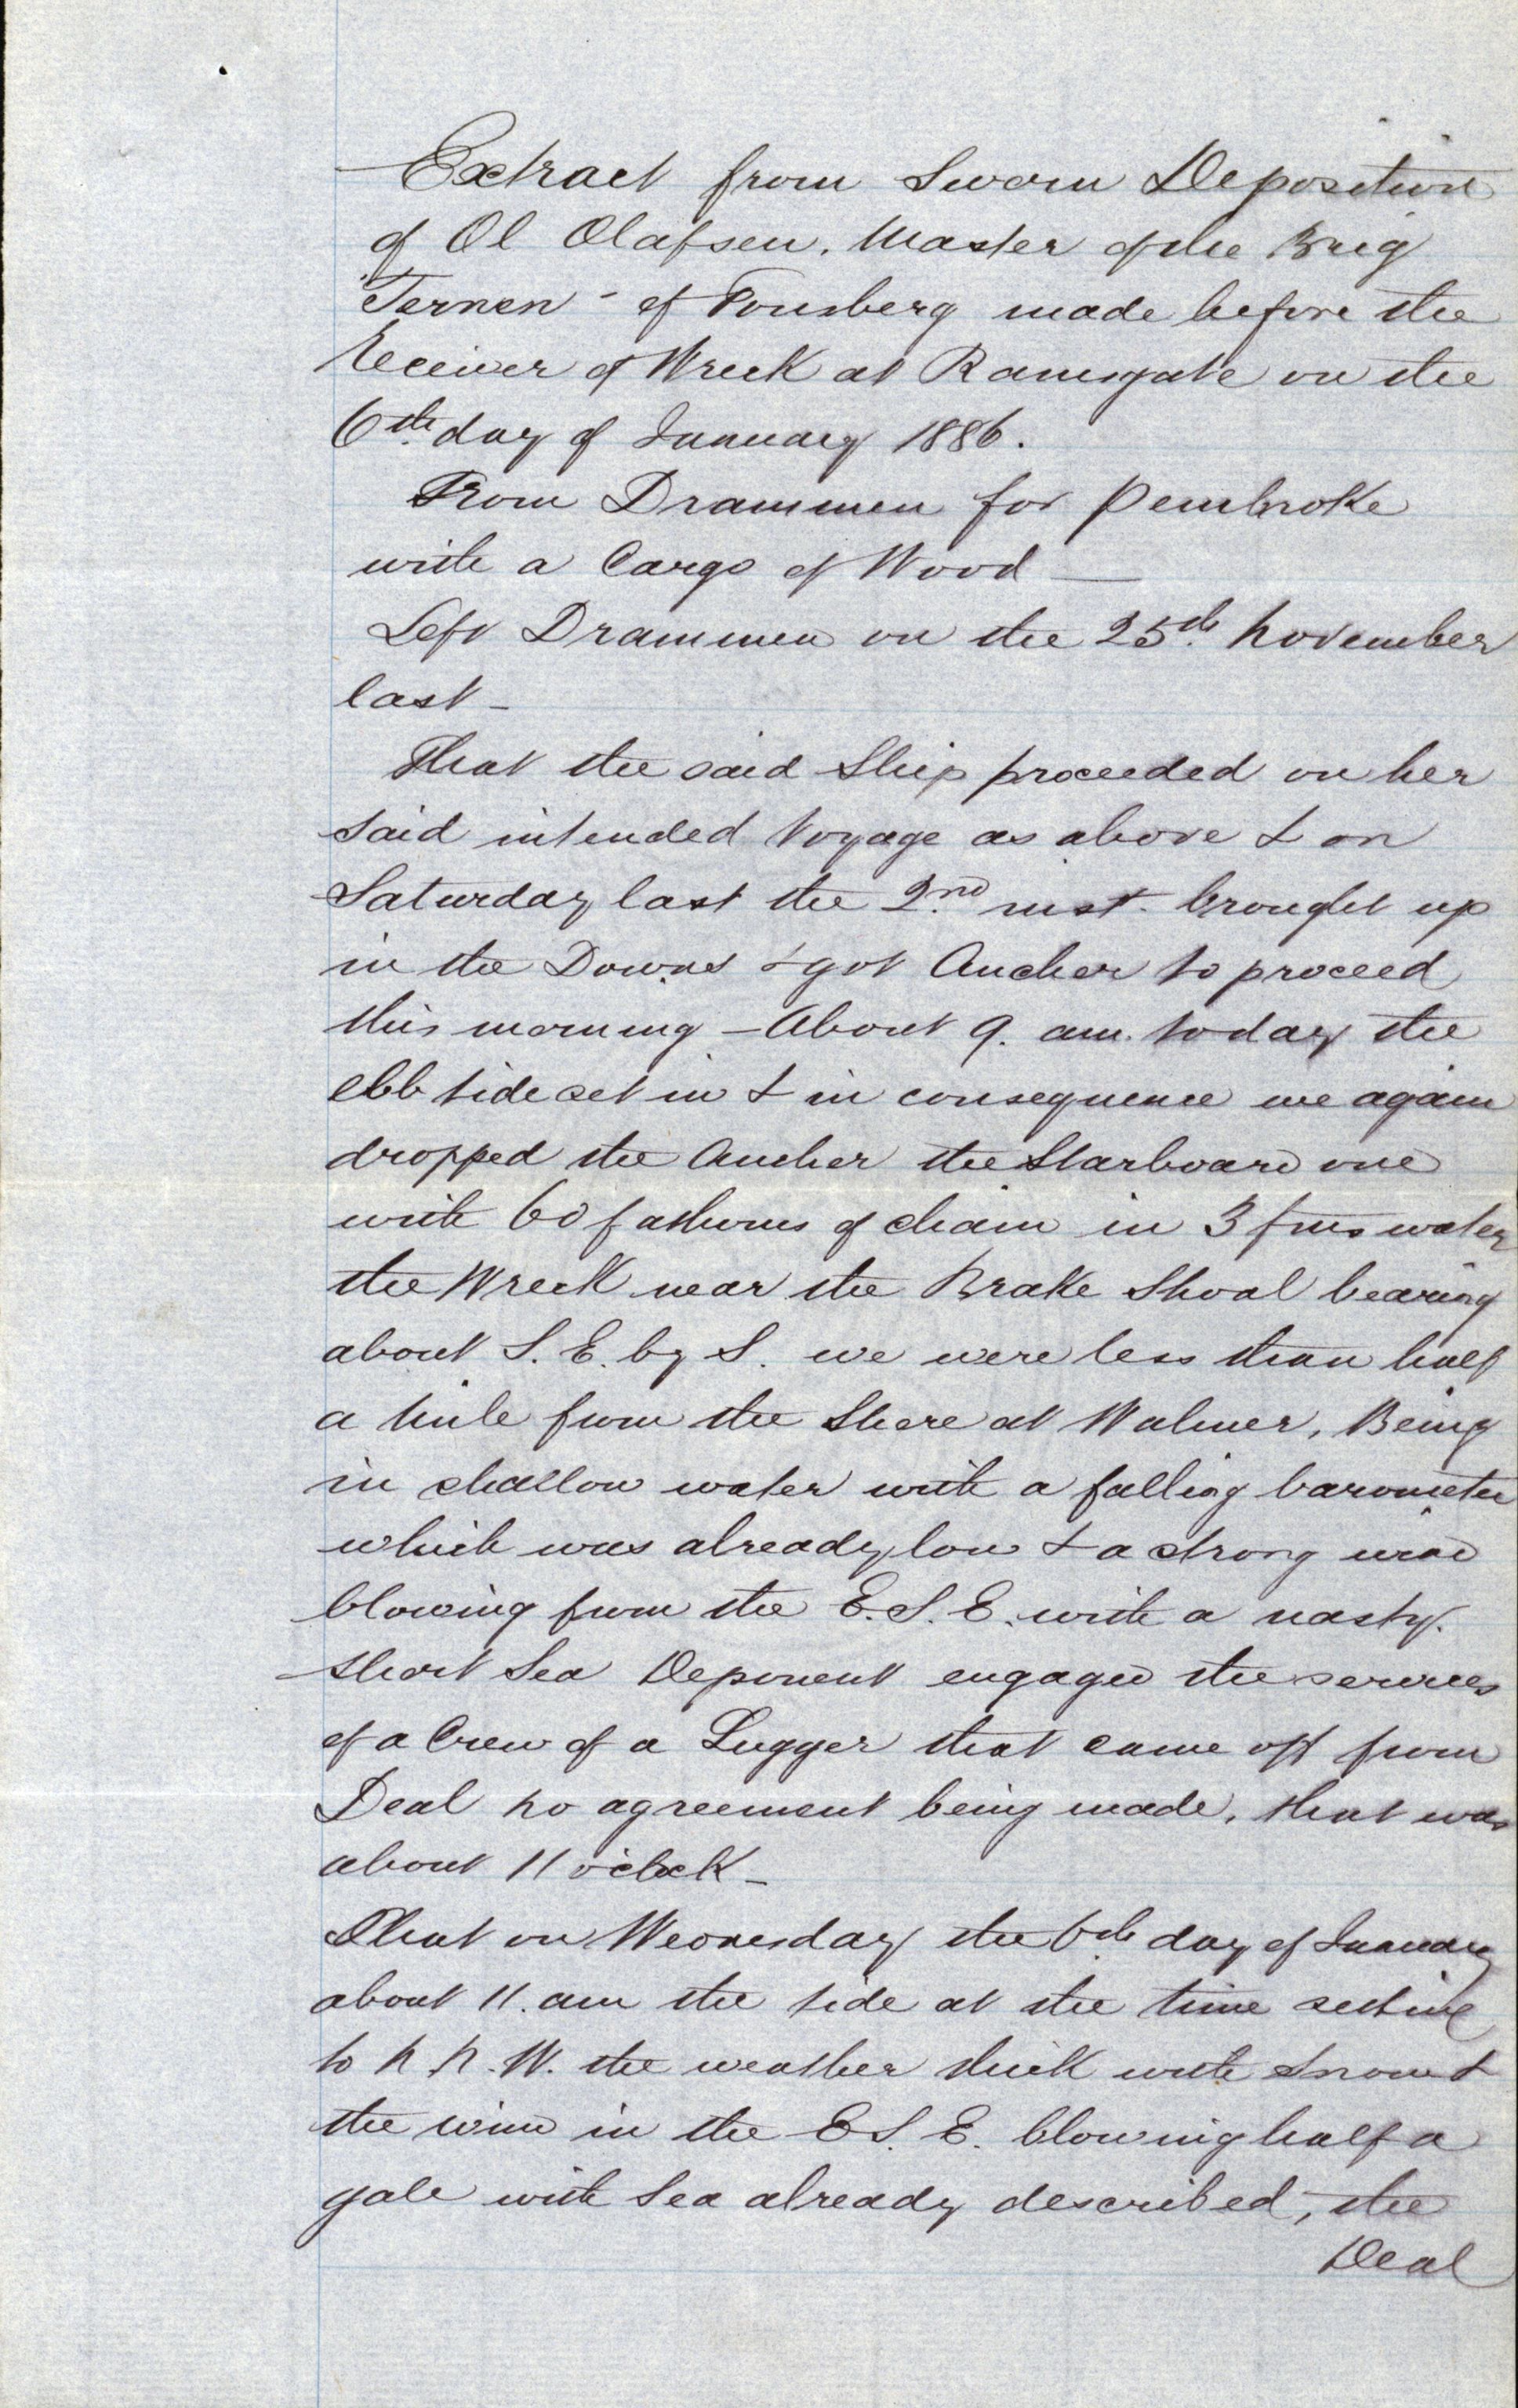 Extract from Sworn Deposition
of Ol Olafsen. Master of the Brig
"Ternen" of Tonsberg made before the
Receiver of Wreck at Ramsgate on the
6th. day of January 1886.
From Drammen for Pembroke
with a Cargo of Wood —
Left Drammen on the 25th. November
last –
That the said Ship proceeded on her
said intended Voyage as above & on
Saturday last the 2nd inst. brought up
in the Downs & got Ancher to proceed
this morning – About 9. am. today the
ebb tide set in & in consequence we again
dropped the Ancher the Starboard one
with 60 fathoms of chain in 3 fms water
the Wreck near the Brake Shoal bearing
about S. E. by S. we were less than half
a mile from the Shore at Walmer, Being
in shallow water with a falling barometer
which was already low & a strong wind
blowing from the E. S. E. with a nasty.
short Sea Deponent engaged the services
of a Crew of a Lugger that came off from
Deal no agreement being made, that was
about 11 o'clock –
That on Wednesday the 6th day of January
about 11. am the tide at the time setting
to N. N. W. the weather thick with snow &
the wind in the E S. E. blowing half a
gale with Sea already described, the
Deal